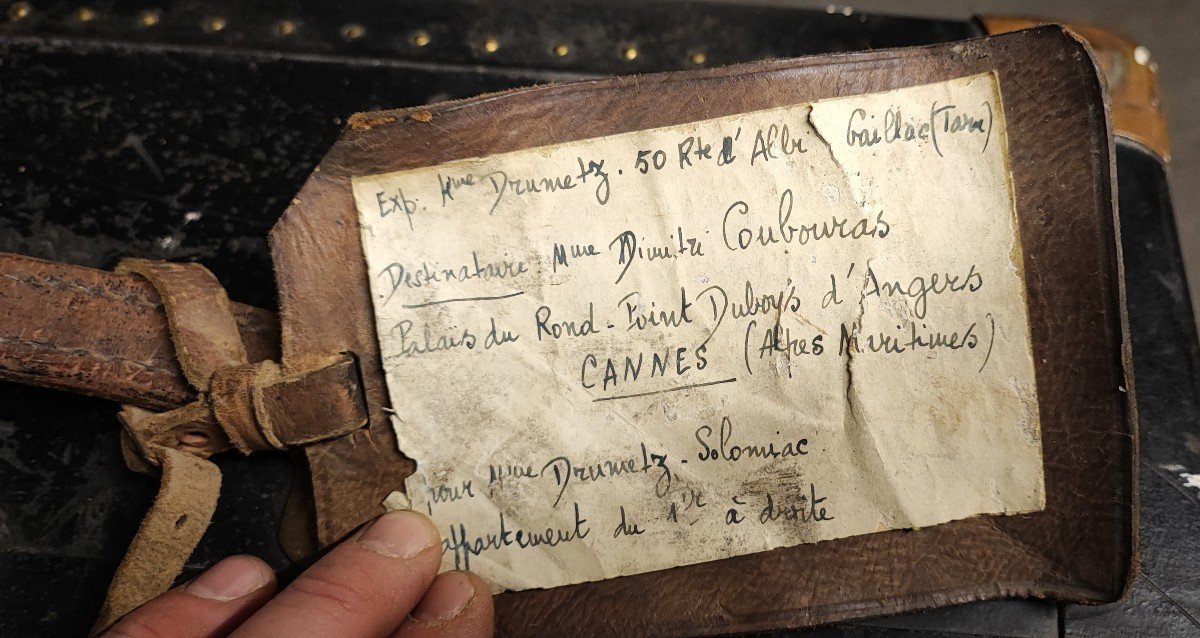 Exp. Mme Drumetz. 50 Rte d'Albi Gaillac (Tarn)
Destinataire Mme Dimitri Coubouras
Palais du Rond-Point Duboys d'Angers
CANNES (Alpes Maritimes)
pour Mme Drumetz-Solomiac
appartement du 1er à droite